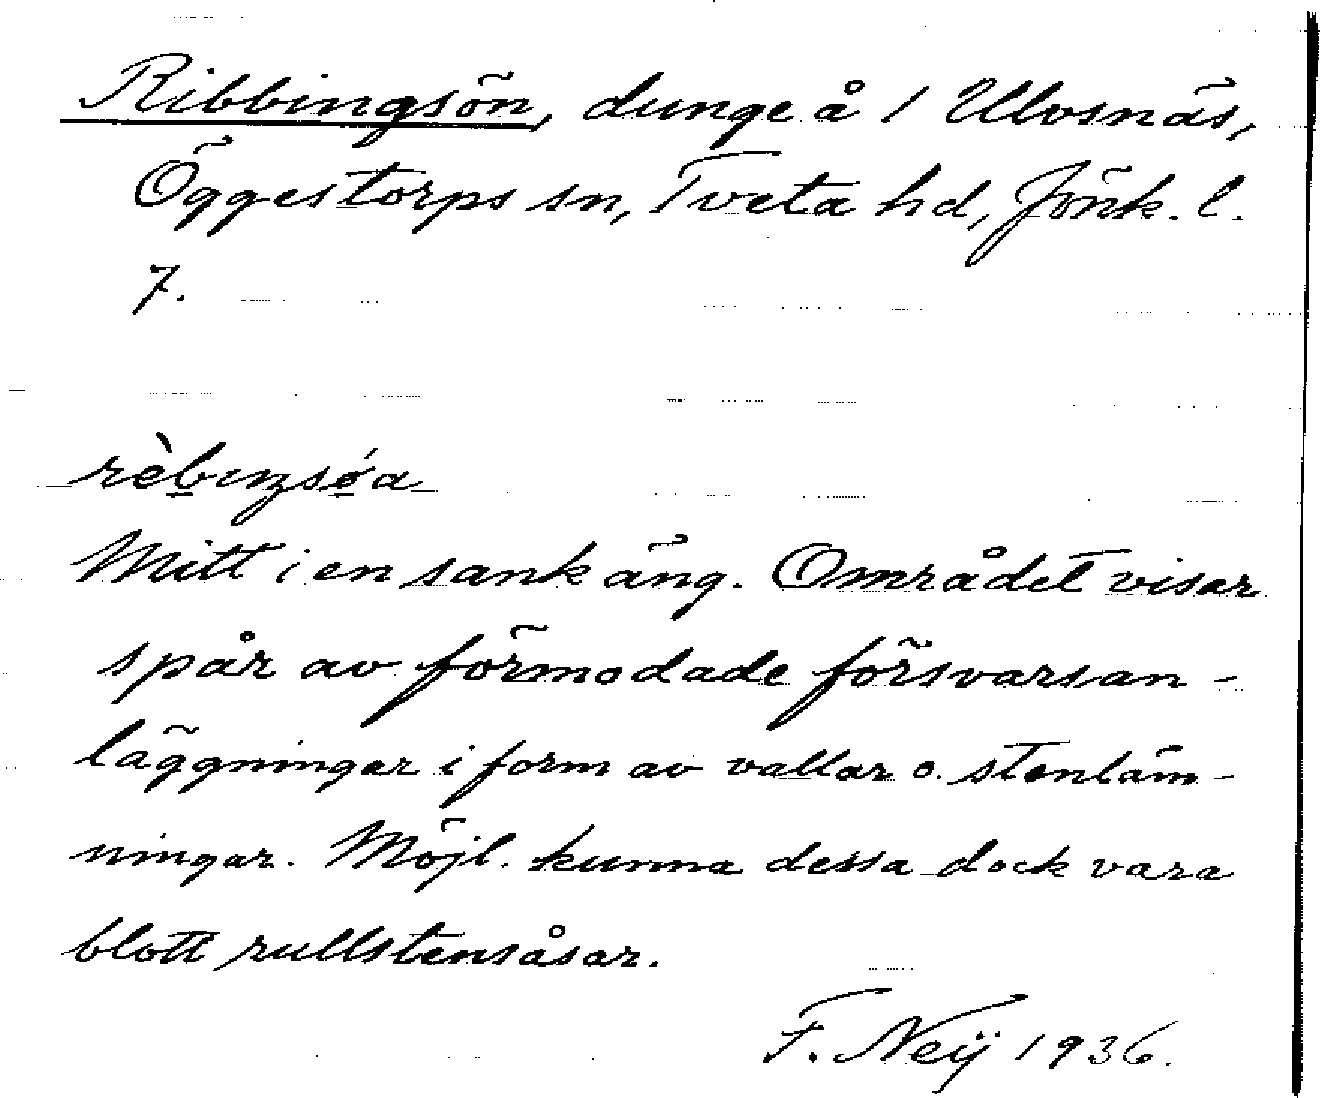 Ribbingsön, dunge å 1 Ulvsnäs,
Öggestorps sn, Tveta hd, Jönk. l.
7.
rèbiŋsǿa
Mitt i en sank äng. Området visar
spår av förmodade försvarsan-
läggningar i form av vallar o. stenläm-
ningar. Möjl. kunna dessa dock vara
blott rullstensåsar.
F. Neij 1936.